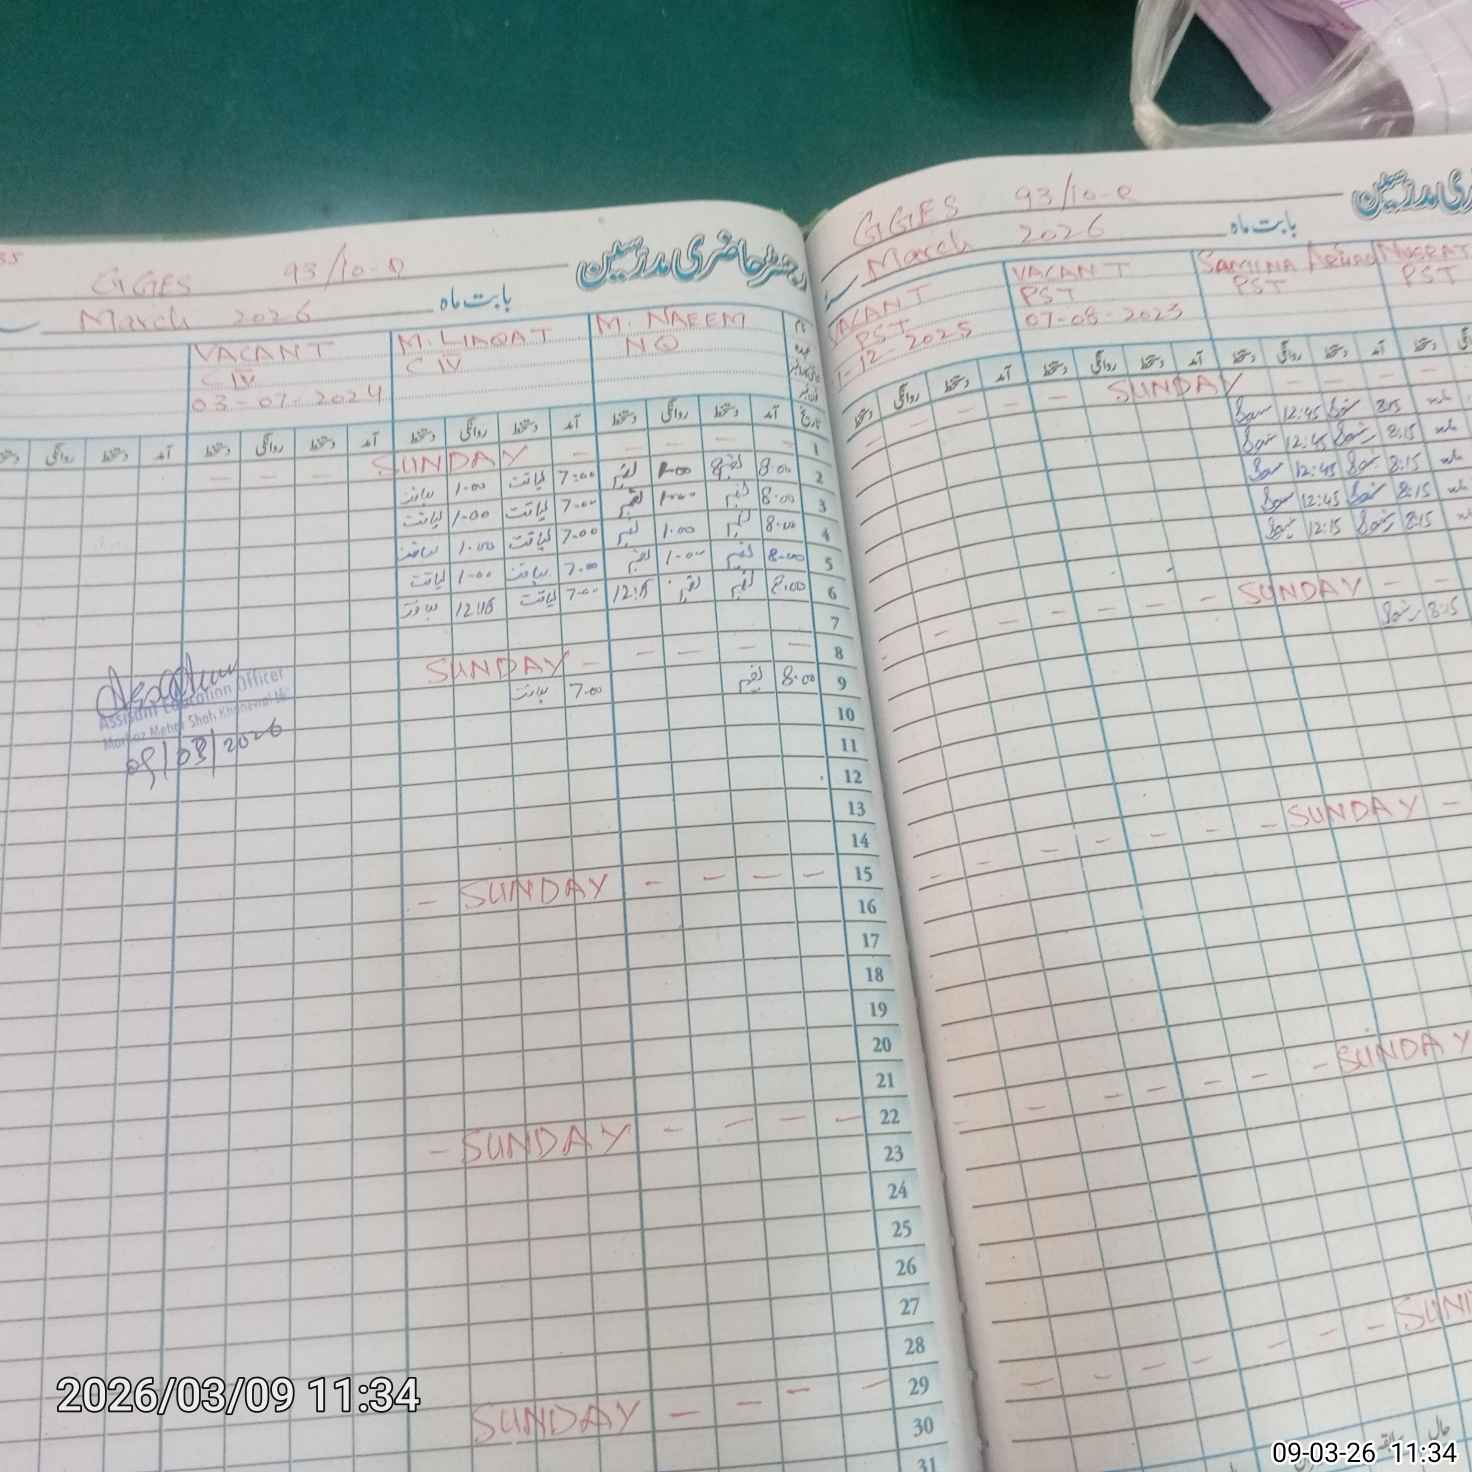 GGES 93/10-R
رجسٹر حاضری مدرسین
March 2026 بابت ماہ
VACANT M. LIAQAT M. NAEEM
C IV C IV NQ
03-07-2024
آمد دستخط روانگی دستخط آمد دستخط روانگی دستخط آمد دستخط روانگی دستخط تاریخ
SUNDAY 1
لیاقت 1.00 لیاقت 7:00 1.00 8.00 2
لیاقت 1.00 لیاقت 7.00 1.00 8.00 3
لیاقت 1.00 لیاقت 7.00 1.00 8.00 4
لیاقت 1.00 لیاقت 7.00 1.00 8.00 5
لیاقت 12:15 لیاقت 7.00 12:15 8.00 6
7
SUNDAY 8
لیاقت 7.00 8.00 9
10
11
12
13
14
SUNDAY 15
16
17
18
19
20
21
SUNDAY 22
23
24
25
26
27
28
SUNDAY 29
30
31
Assistant Education Officer
09/03/2026
GGES 93/10-R
March 2026 بابت ماہ
VACANT VACANT SAMINA Arshad NUSRAT
PST PST PST PST
1-12-2025 07-08-2023
دستخط روانگی دستخط آمد دستخط روانگی دستخط آمد دستخط روانگی دستخط آمد دستخط
SUNDAY
12:45 8:15
12:45 8:15
12:45 8:15
12:45 8:15
12:15 8:15
SUNDAY
8:15
SUNDAY
SUNDAY
2026/03/09 11:34
09-03-26 11:34